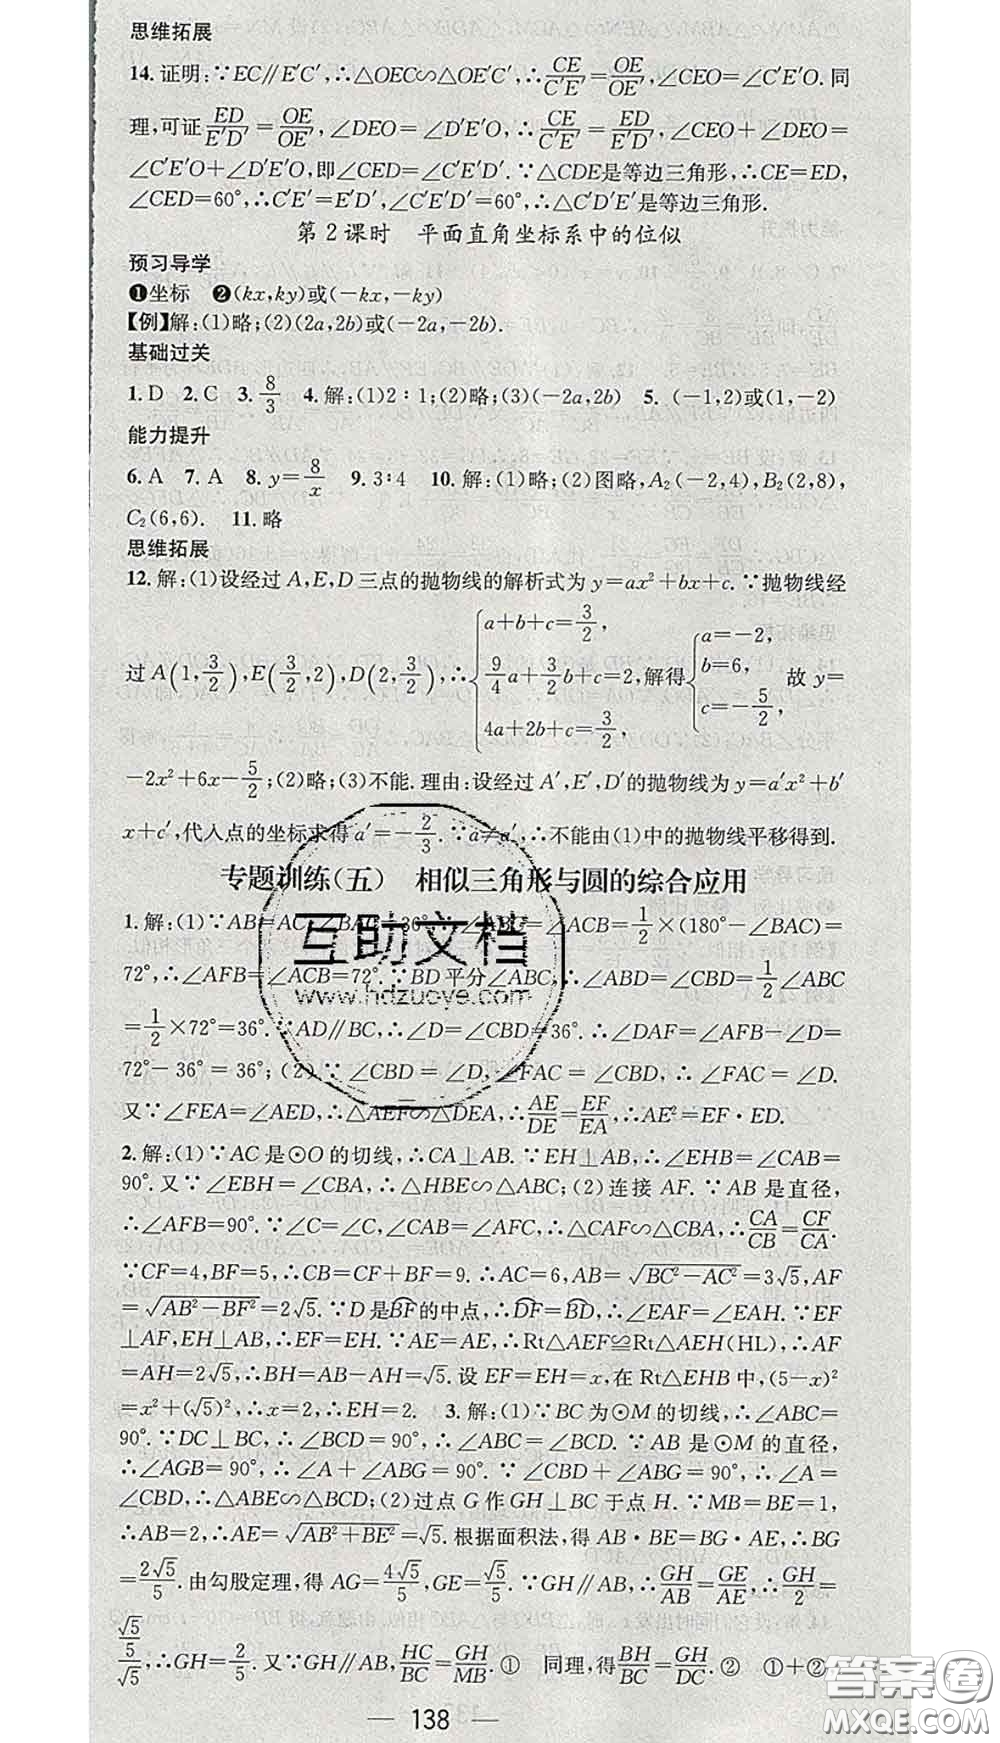 思维拓展
14.证明:∵EC∥E′C′,∴△OEC∽△OE′C′,∴CE/C′E′=OE/OE′,∠CEO=∠C′E′O.同
理,可证ED/E′D′=OE/OE′,∠DEO=∠D′E′O,∴CE/C′E′=ED/E′D′,∠CEO+∠DEO=
∠C′E′O+∠D′E′O,即∠CED=∠C′E′D′.∵△CDE是等边三角形,∴CE=ED,
∠CED=60°,∴C′E′=E′D′,∠C′E′D′=60°,∴△C′D′E′是等边三角形.
第2课时 平面直角坐标系中的位似
预习导学
❶坐标 ❷(kx,ky)或(-kx,-ky)
【例】解:(1)略;(2)(2a,2b)或(-2a,-2b).
基础过关
1.D 2.C 3.8/3 4.解:(1)2∶1;(2)略;(3)(-2a,2b) 5.(-1,2)或(1,-2)
能力提升
6.A 7.A 8.y=8/x 9.3∶4 10.解:(1)略;(2)图略,A₂(-2,4),B₂(2,8),
C₂(6,6). 11.略
思维拓展
12.解:(1)设经过A,E,D三点的抛物线的解析式为y=ax²+bx+c.∵抛物线经
过A(1,3/2),E(3/2,2),D(2,3/2),∴{a+b+c=3/2, 9/4a+3/2b+c=2, 4a+2b+c=3/2, 解得{a=-2, b=6, c=-5/2, 故y=
-2x²+6x-5/2;(2)略;(3)不能.理由:设经过A′,E′,D′的抛物线为y=a′x²+b′
x+c′,代入点的坐标求得a′=-2/3.∵a≠a′,∴不能由(1)中的抛物线平移得到.
专题训练(五) 相似三角形与圆的综合应用
1.解:(1)∵AB=AC,∠BAC=36°,∴∠ABC=∠ACB=1/2×(180°-∠BAC)=
72°,∴∠AFB=∠ACB=72°.∵BD平分∠ABC,∴∠ABD=∠CBD=1/2∠ABC
=1/2×72°=36°.∵AD∥BC,∴∠D=∠CBD=36°.∴∠DAF=∠AFB-∠D=
72°-36°=36°;(2)∵∠CBD=∠D,∠FAC=∠CBD,∴∠FAC=∠D.
又∵∠FEA=∠AED,∴△AEF∽△DEA,∴AE/DE=EF/EA,∴AE²=EF·ED.
2.解:(1)∵AC是⊙O的切线,∴CA⊥AB.∵EH⊥AB,∴∠EHB=∠CAB=
90°.又∵∠EBH=∠CBA,∴△HBE∽△ABC;(2)连接AF.∵AB是直径,
∴∠AFB=90°.∵∠C=∠C,∠CAB=∠AFC,∴△CAF∽△CBA,∴CA/CB=CF/CA.
∵CF=4,BF=5,∴CB=CF+BF=9.∴AC=6,AB=√(BC²-AC²)=3√5,AF
=√(AB²-BF²)=2√5.∵D是BF⌒的中点,∴DF⌒=BD⌒,∴∠EAF=∠EAH.∵EF
⊥AF,EH⊥AB,∴EF=EH.∵AE=AE,∴Rt△AEF≌Rt△AEH(HL),∴AF
=AH=2√5,∴BH=AB-AH=√5.设EF=EH=x,在Rt△EHB中,(5-x)²
=x²+(√5)²,∴x=2,∴EH=2. 3.解:(1)∵BC为⊙M的切线,∴∠ABC=
90°.∵DC⊥BC,∴∠BCD=90°,∴∠ABC=∠BCD.∵AB是⊙M的直径,
∴∠AGB=90°,∴∠A+∠ABG=90°.∵∠CBD+∠ABG=90°,∴∠A=
∠CBD,∴△ABE∽△BCD;(2)过点G作GH⊥BC于点H.∵MB=BE=1,
∴AB=2,∴AE=√(AB²+BE²)=√5.根据面积法,得AB·BE=BG·AE,∴BG
=2√5/5.由勾股定理,得AG=4√5/5,GE=√5/5.∵GH∥AB,∴GH/AB=GE/AE,∴GH/2=
(√5/5)/√5,∴GH=2/5.又∵GH∥AB,HC/BC=GH/MB.① 同理,得BH/BC=GH/DC.② ①+②,
138
互助文档
www.hdzuoye.com
答案圈
MXQE.COM